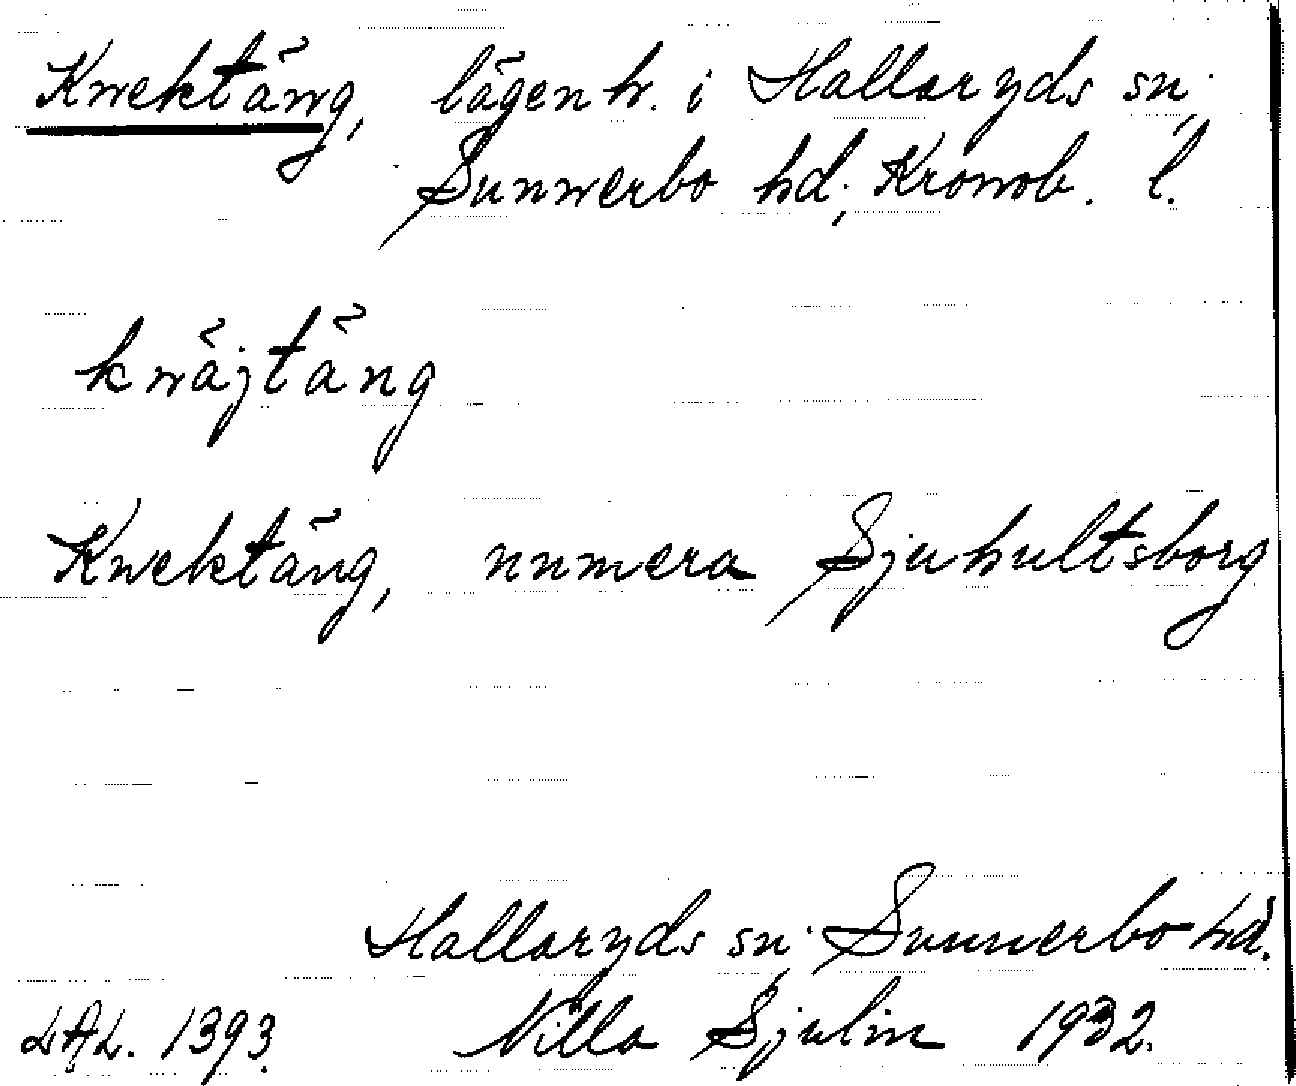 Kvektäng, lägenh. i Hallaryds sn,
Sunnerbo hd, Kronob. l.
kväjtäng
Kvektäng, numera Sjuhultsborg
Hallaryds sn, Sunnerbo hd.
LAL. 1393. Nilla Sjulin 1932.